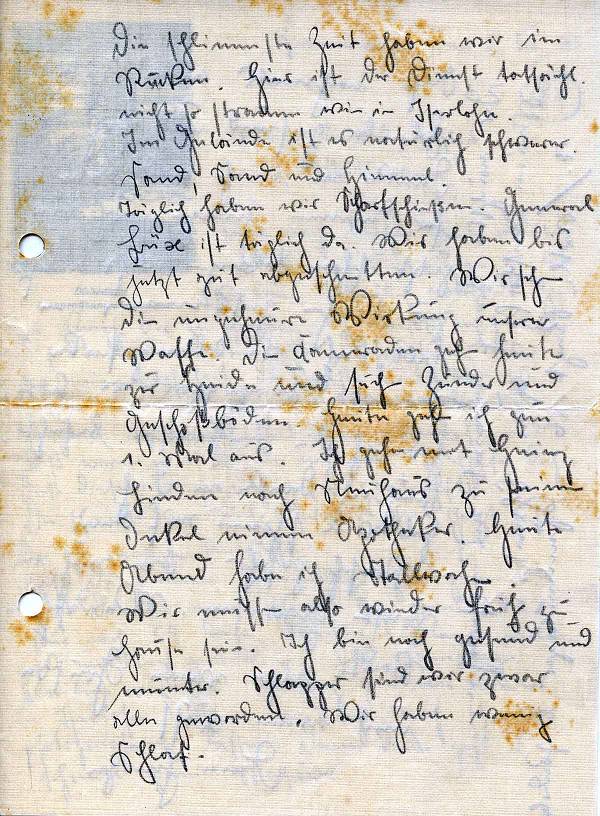 Die schlimmste Zeit haben wir im
Rücken. Hier ist der Dienst tatsächl.
nicht so stramm wie in Iserlohn.
Im Gelände ist es natürlich schwerer.
Sand, Sand und Himmel.
Täglich haben wir Scharfschießen. General
ist täglich da. Wir haben bis
jetzt gut abgeschnitten. Wir sehn
die ungeheure Wirkung unserer
Waffe. Die Cameraden gehn heute
zur Heide und suchen Zünder und
Geschoßböden. Heute geh ich zum
1. Mal aus. Ich gehe mit Heinz
nach Neuhaus zu seinem
Onkel einem Apotheker. Heute
Abend habe ich Stallwache.
Wir müssen also wieder früh zu
Hause sein. Ich bin noch gesund und
munter. Schlapper sind wir zwar
alle geworden. Wir haben wenig
Schlaf.